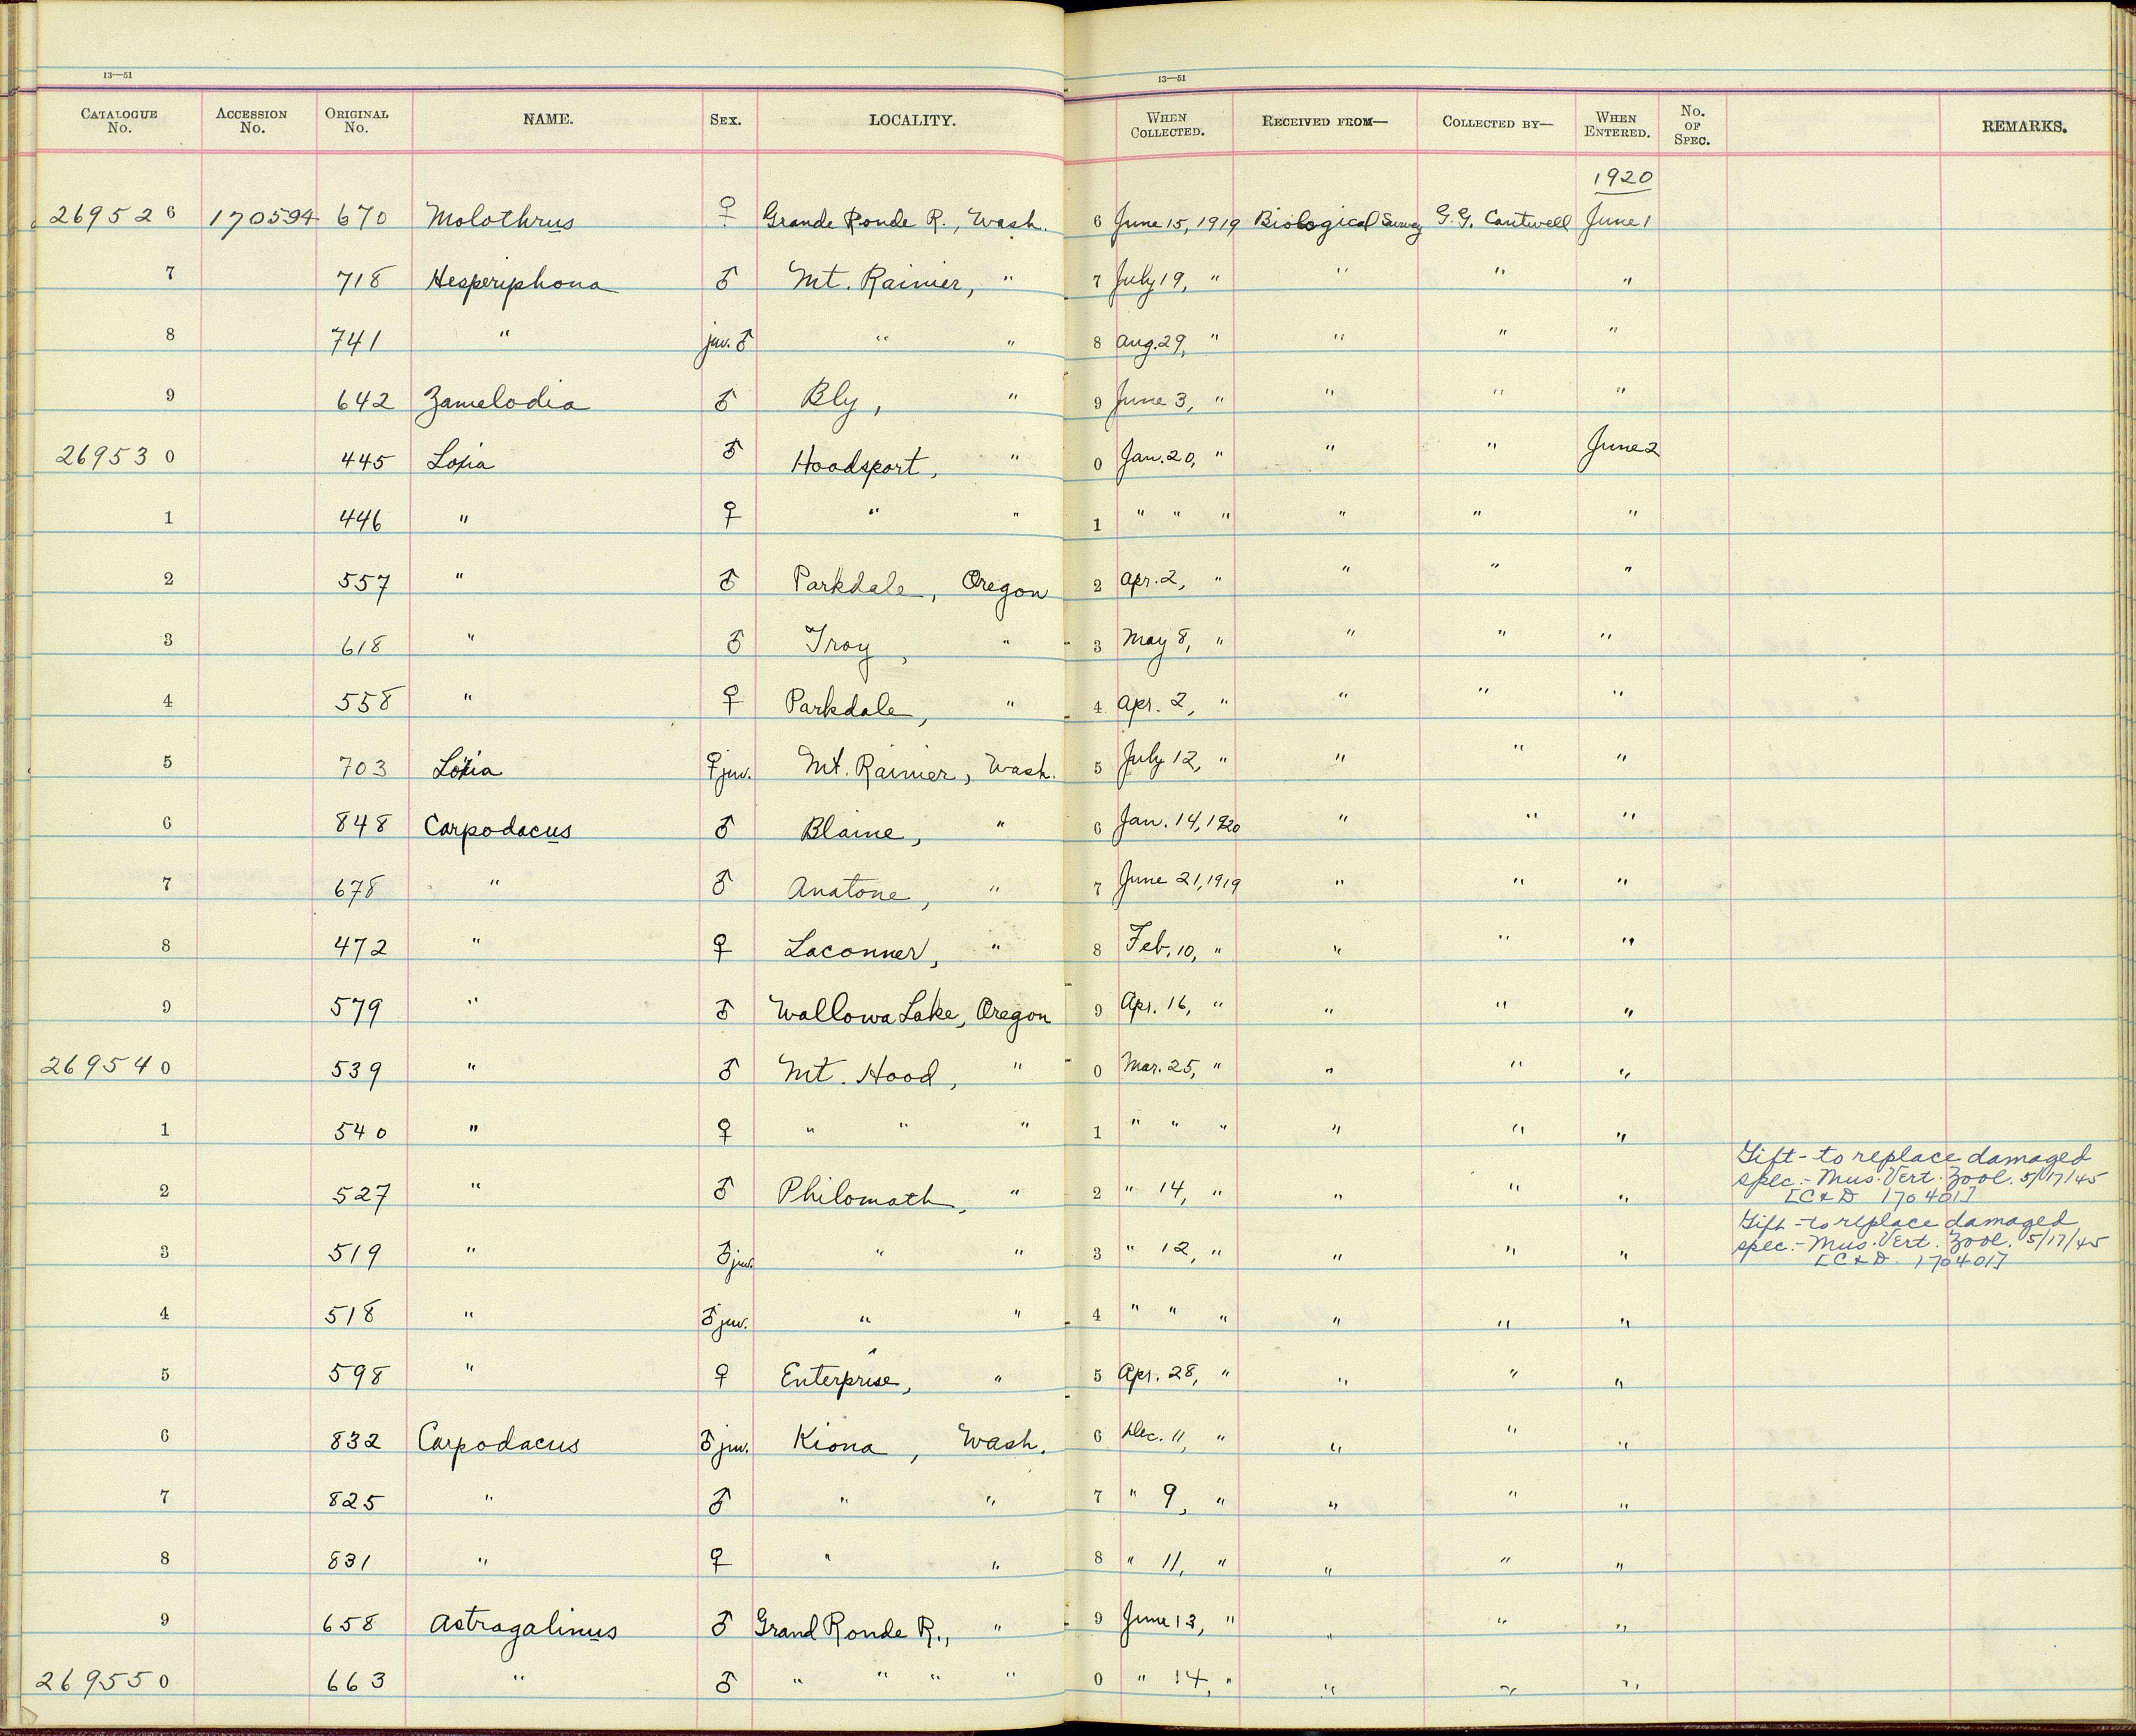 13—51
13—51
CATALOGUE No. ACCESSION No. ORIGINAL No. NAME. SEX. LOCALITY. WHEN COLLECTED. RECEIVED FROM— COLLECTED BY— WHEN ENTERED. No. OF SPEC. REMARKS.
1920
269526 170594 670 Molothrus ♀ Grande Ronde R., Wash. 6 June 15, 1919 Biological Survey G.G. Cantwell June 1
7 718 Hesperiphona ♂ Mt. Rainier, " 7 July 19, " " " "
8 741 " juv. ♂ " " 8 Aug. 29, " " " "
9 642 Zamelodia ♂ Bly, " 9 June 3, " " " "
269530 445 Loxia ♂ Hoodsport, " 0 Jan. 20, " " " June 2
1 446 " ♀ " " 1 " " " " " "
2 557 " ♂ Parkdale, Oregon 2 Apr. 2, " " " "
3 618 " ♂ Troy, " 3 May 8, " " " "
4 558 " ♀ Parkdale, " 4 Apr. 2, " " " "
5 703 Loxia ♀ juv. Mt. Rainier, Wash. 5 July 12, " " " "
6 848 Carpodacus ♂ Blaine, " 6 Jan. 14, 1920 " " "
7 678 " ♂ Anatone, " 7 June 21, 1919 " " "
8 472 " ♀ Laconner, " 8 Feb. 10, " " " "
9 579 " ♂ Wallowa Lake, Oregon 9 Apr. 16, " " " "
269540 539 " ♂ Mt. Hood, " 0 Mar. 25, " " " "
1 540 " ♀ " " " 1 " " " " " "
2 527 " ♂ Philomath, " 2 " 14, " " " " Gift - to replace damaged
spec. - Mus. Vert. Zool. 5/17/45
[C & D 170401]
3 519 " ♂ juv. " " 3 " 12, " " " " Gift - to replace damaged
spec. - Mus. Vert. Zool. 5/17/45
[C & D. 170401]
4 518 " ♂ juv. " " 4 " " " " " "
5 598 " ♀ Enterprise, " 5 Apr. 28, " " " "
6 832 Carpodacus ♂ juv. Kiona, Wash. 6 Dec. 11, " " " "
7 825 " ♂ " " 7 " 9, " " " "
8 831 " ♀ " " 8 " 11, " " " "
9 658 Astragalinus ♂ Grand Ronde R., " 9 June 13, " " " "
269550 663 " ♂ " " " " 0 " 14, " " " "